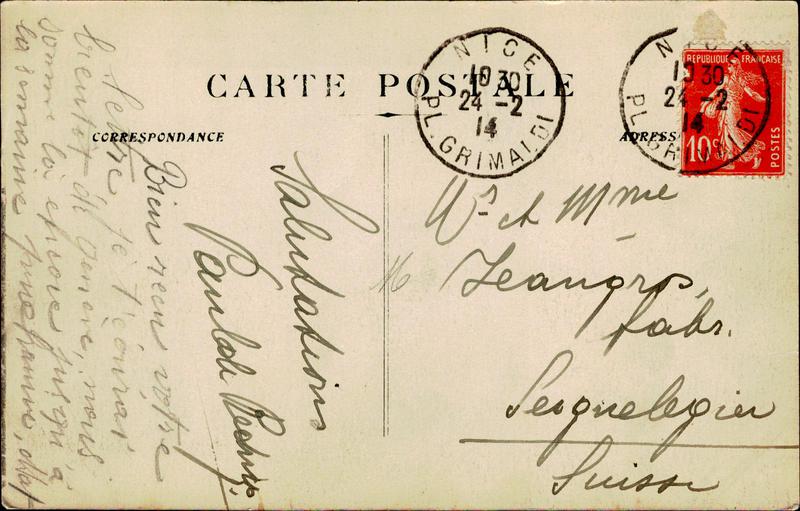 CARTE POSTALE
CORRESPONDANCE
ADRESS
NICE
10 30
24 - 2
14
PL. GRIMALDI
NICE
10 30
24 - 2
14
PL. GRIMALDI
REPUBLIQUE FRANÇAISE
10c
POSTES
Bien reçu votre
lettre je t'écrirai
bientôt de Genève, nous
sommes ici encore jusqu'à
la semaine prochaine,
Salutations
Mr et Mme
Jeangros,
fabr.
Seignelegier
Suisse